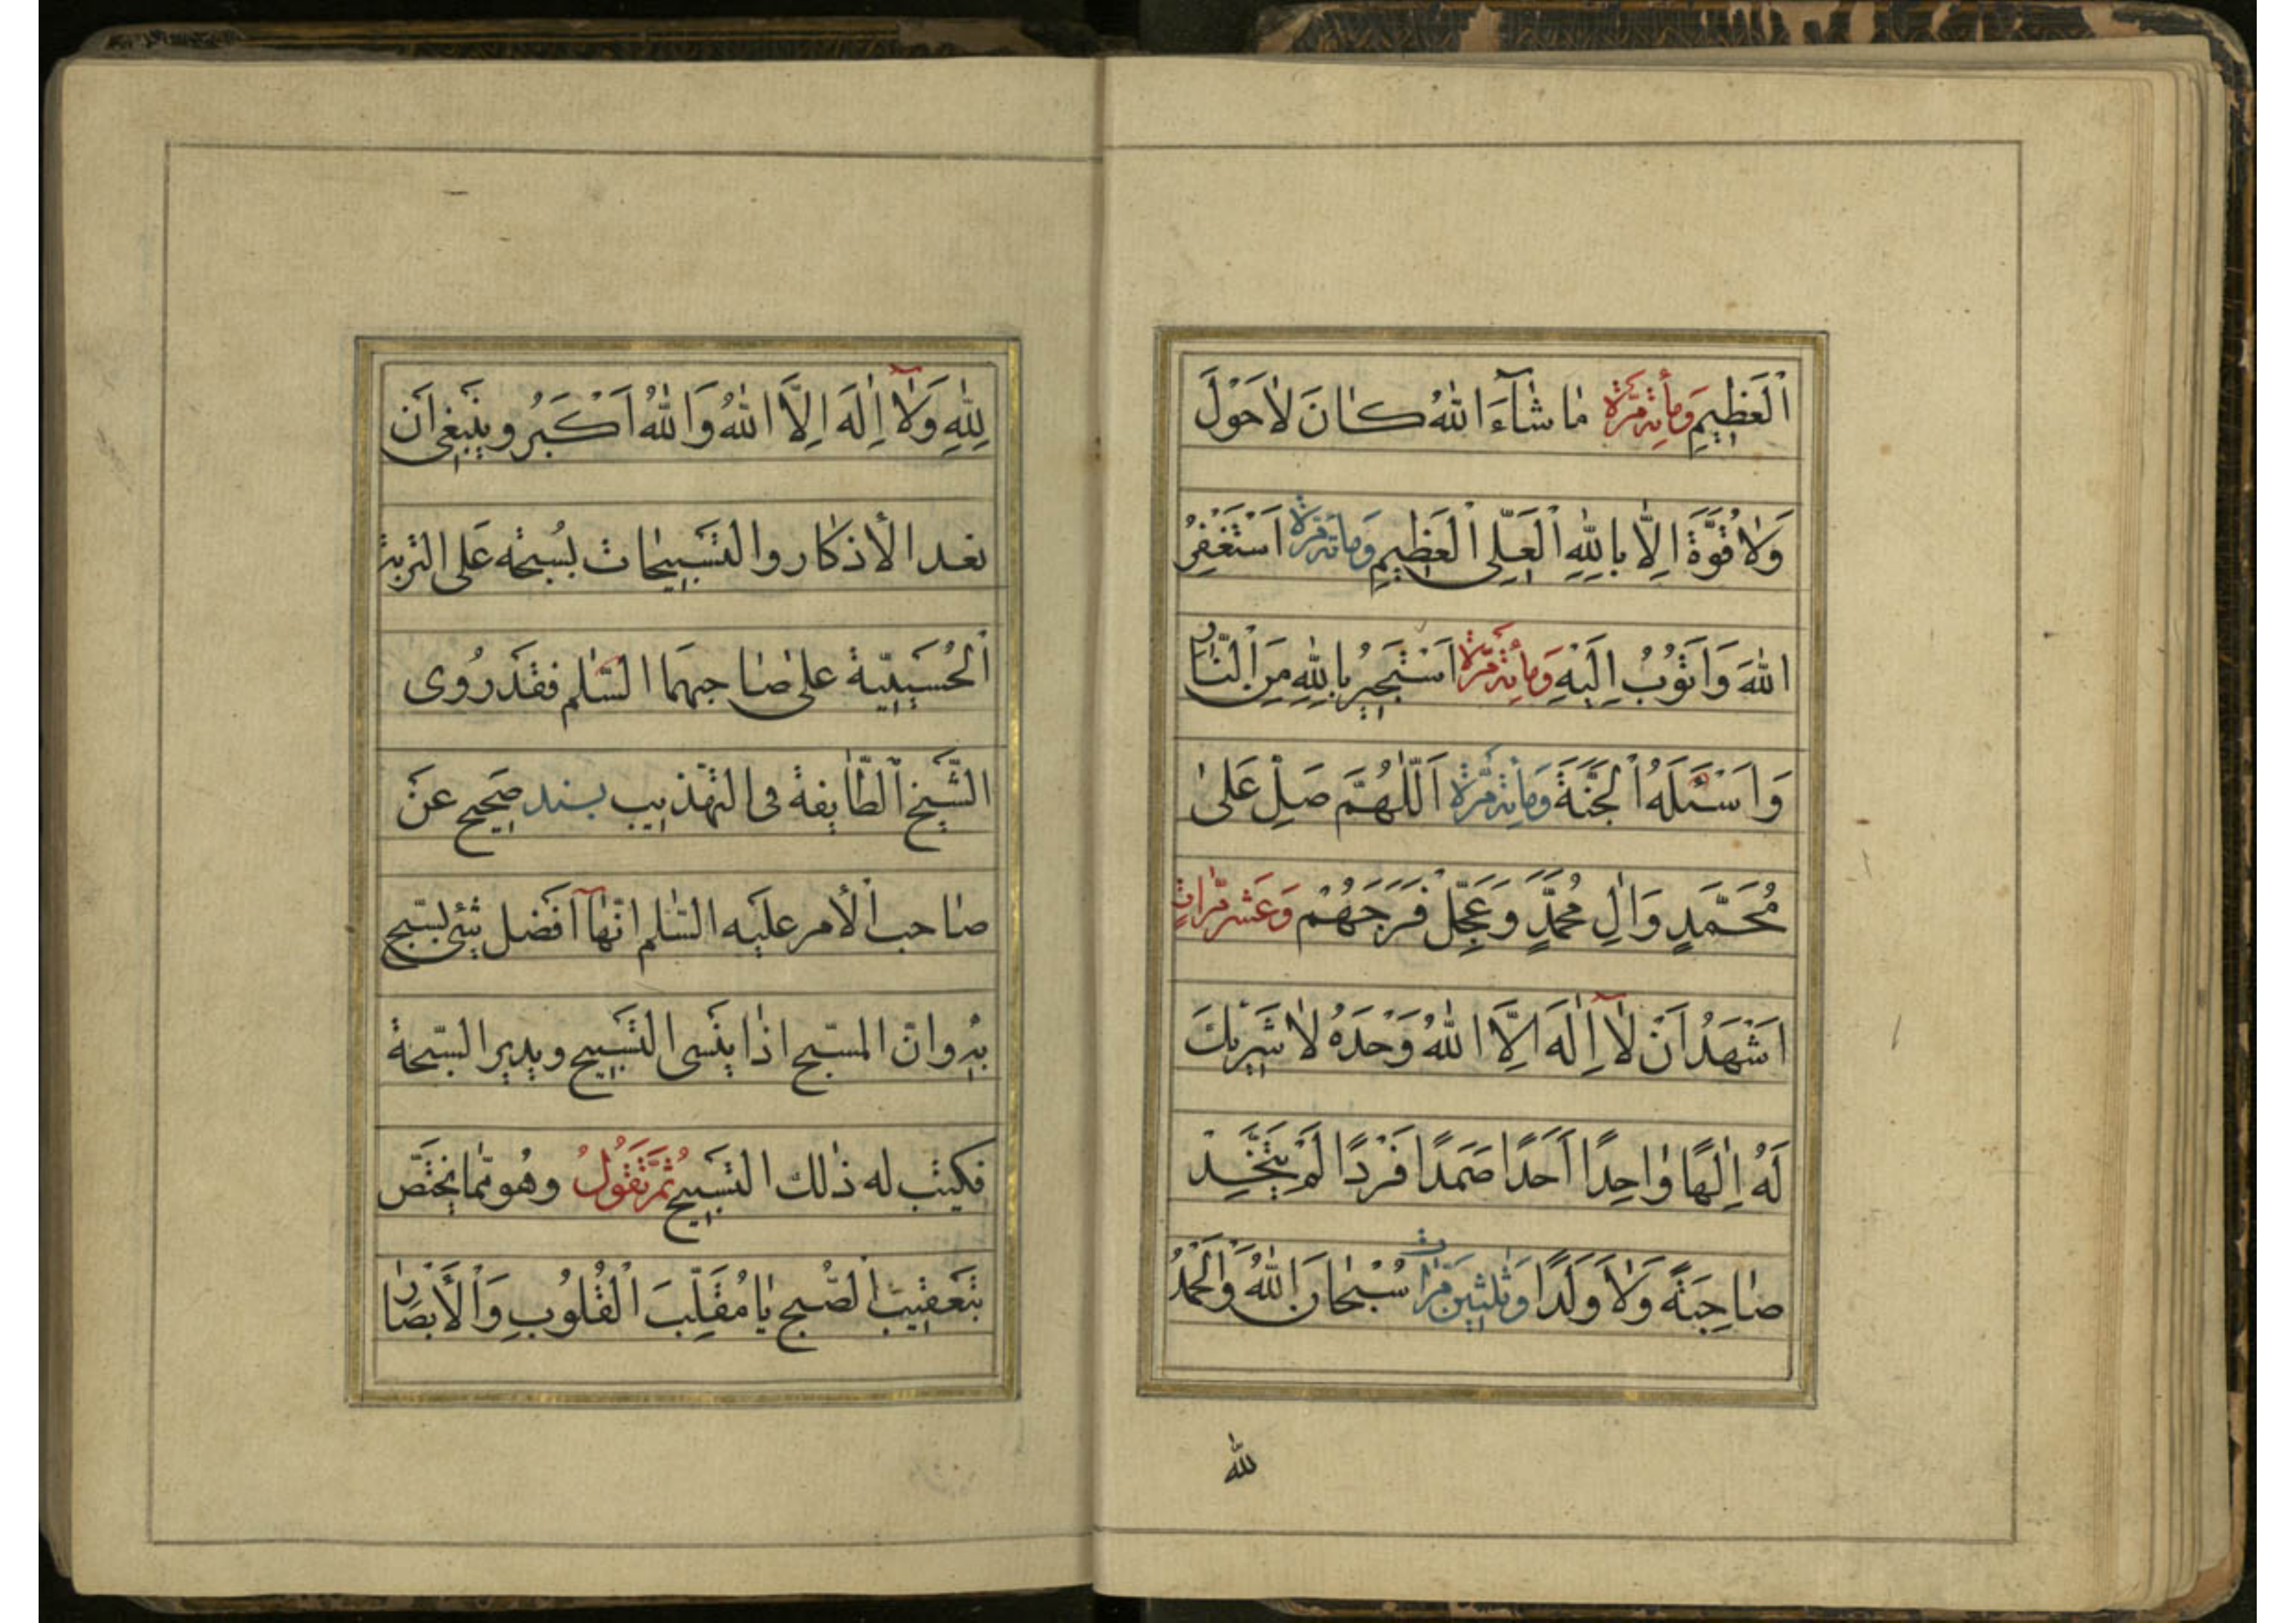 اَلْعَظِيمِ وَمِأَةَ مَرَّةٍ مٰا شٰآءَ اللهُ كٰانَ لاٰحَوْلَ
وَلاٰ قُوَّةَ اِلَّا بِاللهِ الْعَلِىِّ الْعَظِيمِ وَمِأَةَ مَرَّةٍ اَسْتَغْفِرُ
اللهَ وَاَتُوبُ اِلَيْهِ وَمِأَةَ مَرَّةٍ اَسْتَجِيرُ بِاللهِ مِنَ النّٰارِ
وَاَسْئَلُهُ الْجَنَّةَ وَمِأَةَ مَرَّةٍ اَللّٰهُمَّ صَلِّ عَلىٰ
مُحَمَّدٍ وَاٰلِ مُحَمَّدٍ وَعَجِّلْ فَرَجَهُمْ وَعَشْرَ مَرّٰاتٍ
اَشْهَدُ اَنْ لاٰ اِلٰهَ اِلَّا اللهُ وَحْدَهُ لاٰ شَرِيْكَ
لَهُ اِلٰهًا وٰاحِدًا اَحَدًا صَمَدًا فَرْدًا لَمْ يَتَّخِذْ
صٰاحِبَةً وَلاٰ وَلَدًا وَثَلٰثِينَ مَرّٰات سُبْحٰانَ اللهِ وَالْحَمْدُ
لله
لِلّٰهِ وَلاٰ اِلٰهَ اِلَّا اللهُ وَاللهُ اَكْبَرُ وينبغى اَن
تعد الأذكار والتسبيحات بسُبحة على التربة
اَلْحُسَينيّة على صٰاحبهَا السّٰلم فقَد رُوى
الشّيخ الطّٰايفة فى التهذيب بسند صَحيح عَن
صٰاحب الأمر عليه السّٰلم انّهٰا اَفضل شئ يسبّح
به وانّ المسبّح اذٰا ينسى التسبيح ويدير السّبحة
فيكتب له ذٰلك التسبيح ثُمَّ تَقُولُ وهُو ممّا يختصّ
بتعقيب الصُّبح يٰا مُقَلِّبَ الْقُلُوبِ وَالْأَبْصٰارِ